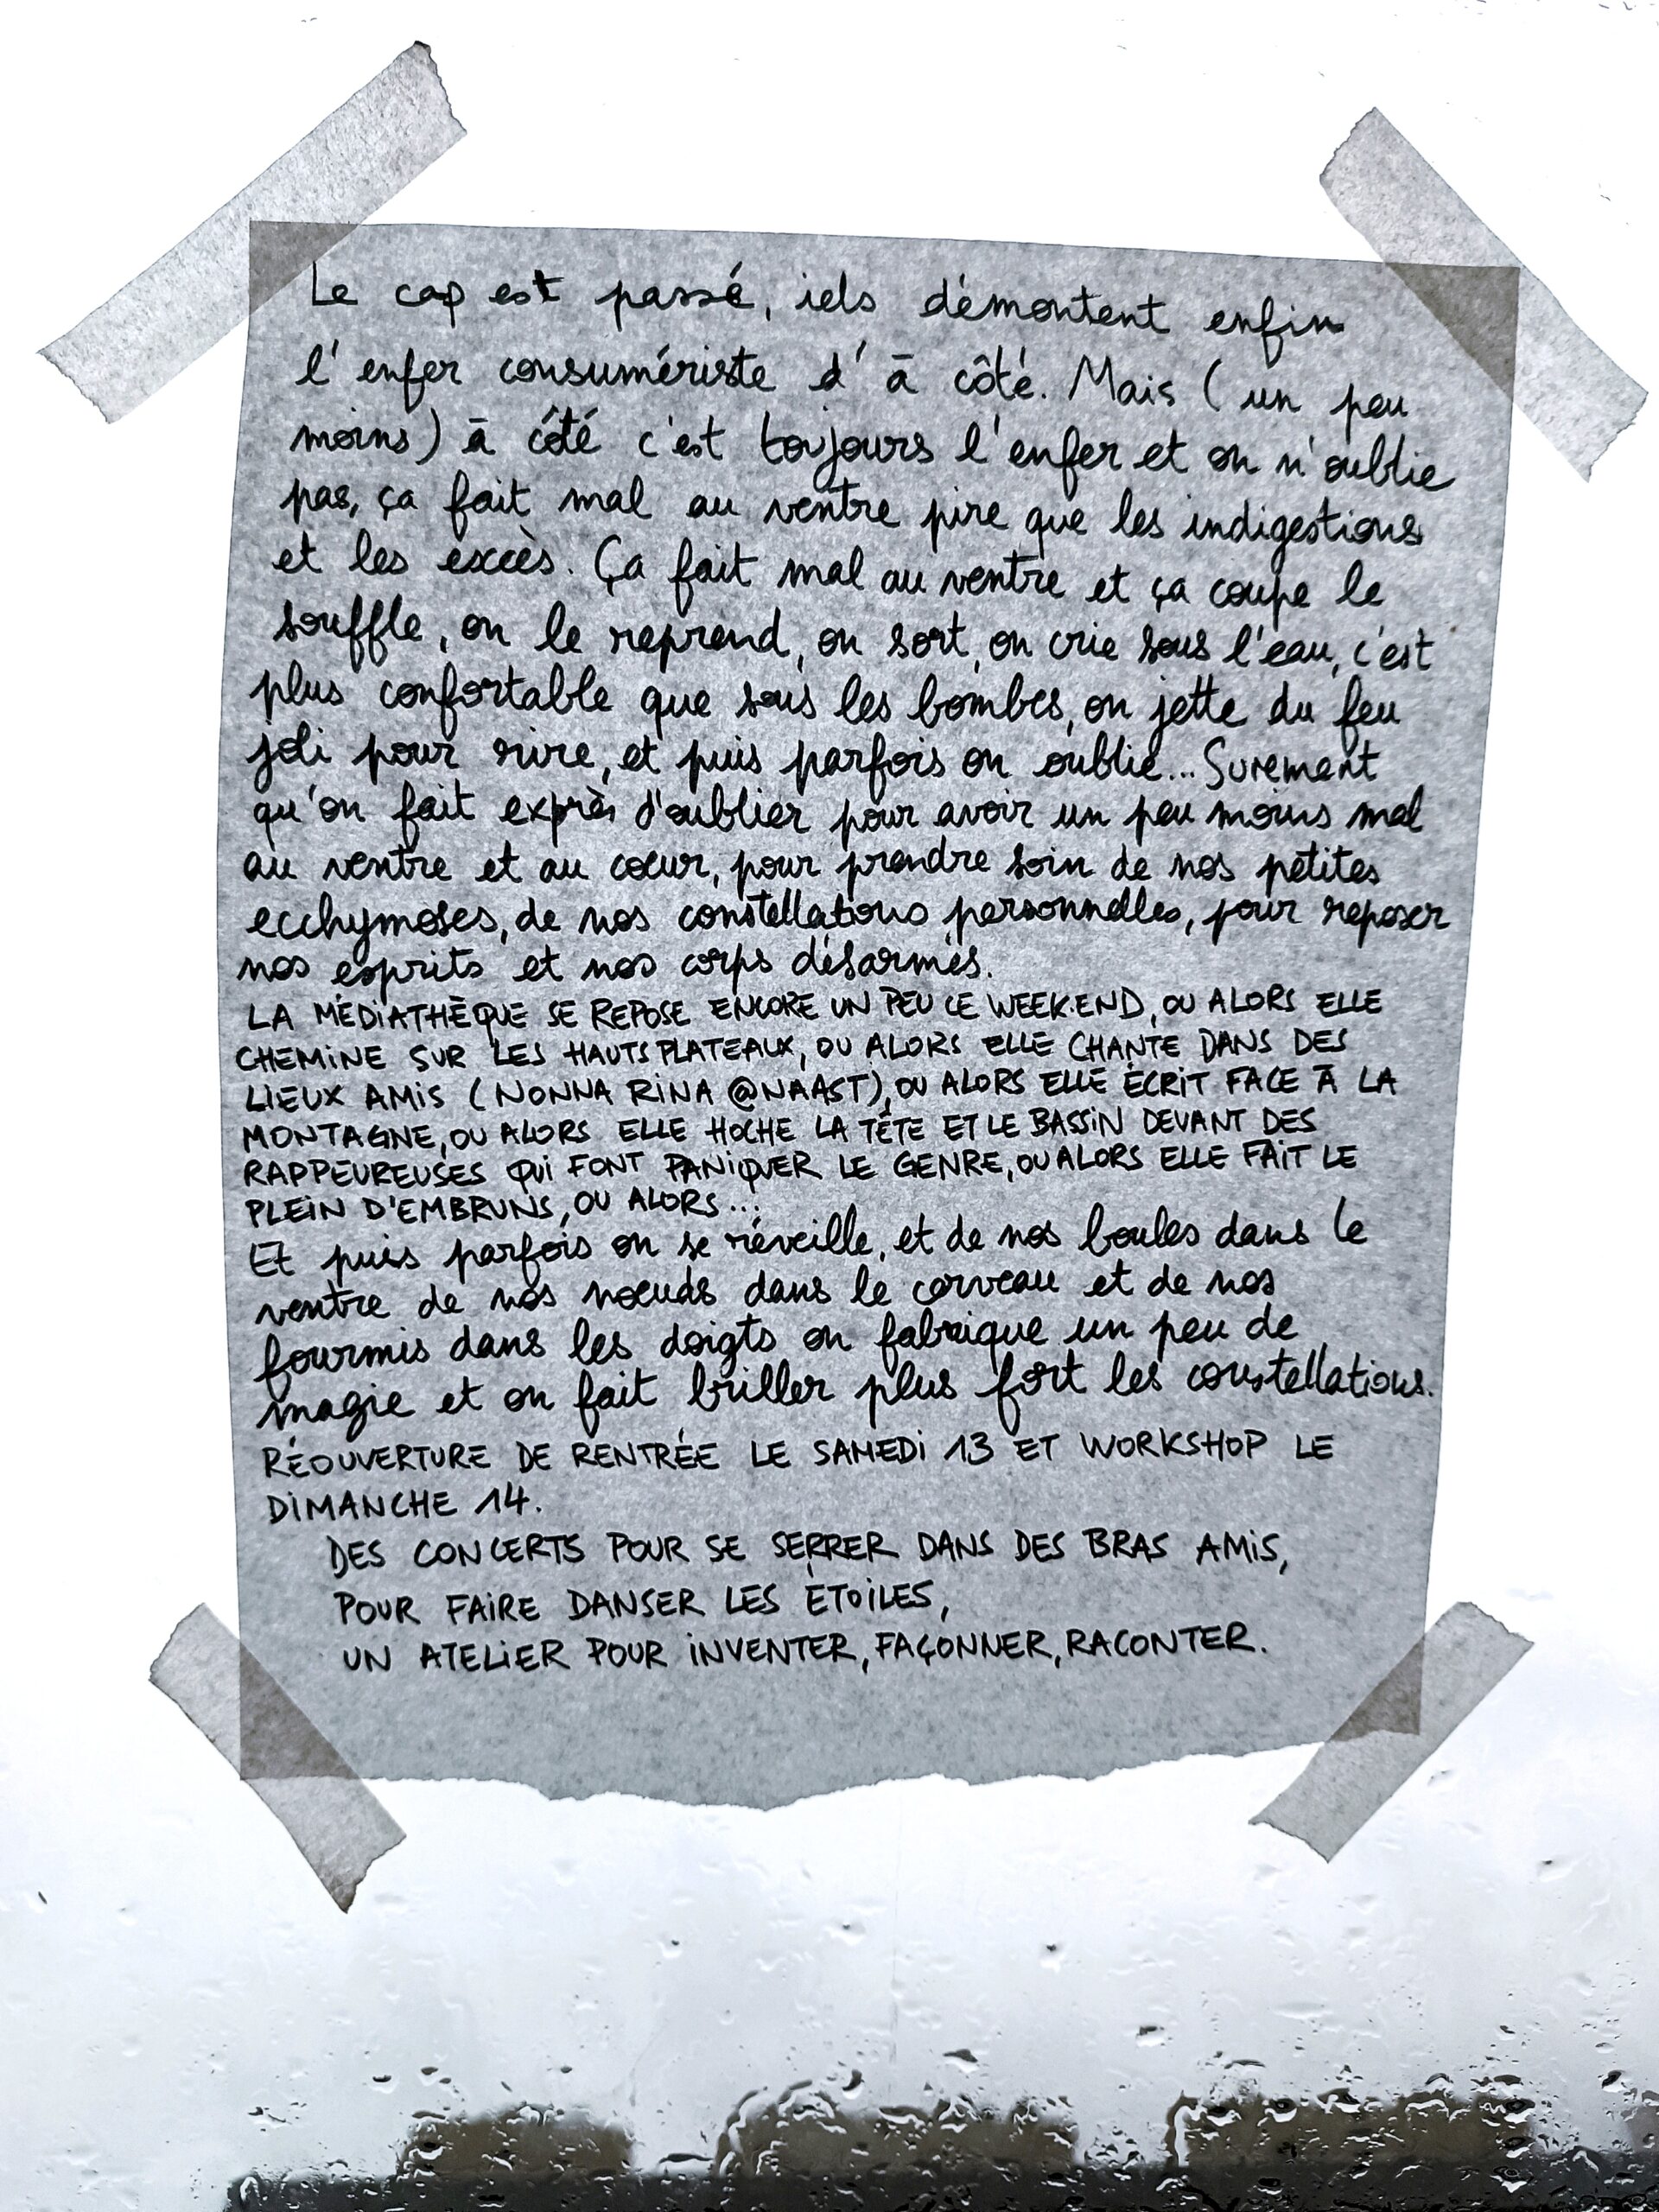 Le cap est passé, iels démontent enfin
l'enfer consumériste d'à côté. Mais (un peu
moins) à côté c'est toujours l'enfer et on n'oublie
pas, ça fait mal au ventre pire que les indigestions
et les excès. Ça fait mal au ventre et ça coupe le
souffle, on le reprend, on sort, on crie sous l'eau, c'est
plus confortable que sous les bombes, on jette du feu
joli pour rire, et puis parfois on oublie... Surement
qu'on fait exprès d'oublier pour avoir un peu moins mal
au ventre et au coeur, pour prendre soin de nos petites
ecchymoses, de nos constellations personnelles, pour reposer
nos esprits et nos corps désarmés.
LA MÉDIATHÈQUE SE REPOSE ENCORE UN PEU CE WEEK-END, OU ALORS ELLE
CHEMINE SUR LES HAUTS PLATEAUX, OU ALORS ELLE CHANTE DANS DES
LIEUX AMIS (NONNA RINA @NAAST), OU ALORS ELLE ÉCRIT FACE À LA
MONTAGNE, OU ALORS ELLE HOCHE LA TÊTE ET LE BASSIN DEVANT DES
RAPPEUREUSES QUI FONT PANIQUER LE GENRE, OU ALORS ELLE FAIT LE
PLEIN D'EMBRUNS, OU ALORS...
Et puis parfois on se réveille, et de nos boules dans le
ventre de nos noeuds dans le cerveau et de nos
fourmis dans les doigts on fabrique un peu de
magie et on fait briller plus fort les constellations.
RÉOUVERTURE DE RENTRÉE LE SAMEDI 13 ET WORKSHOP LE
DIMANCHE 14.
DES CONCERTS POUR SE SERRER DANS DES BRAS AMIS,
POUR FAIRE DANSER LES ÉTOILES,
UN ATELIER POUR INVENTER, FAÇONNER, RACONTER.